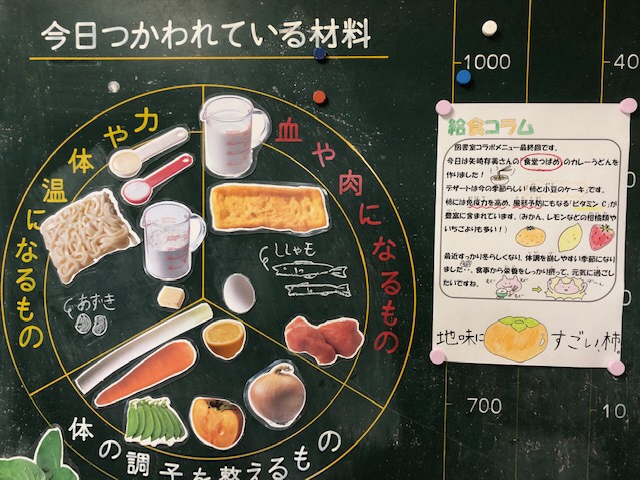 今日つかわれている材料
力や体温になるもの
血や肉になるもの
ししゃも
あずき
体の調子を整えるもの
1000
40
700
10
給食コラム
図書室コラボメニュー最終回です。
今日は矢崎存美さんの「食堂つばめ」のカレーうどんを
作りました!
デザートは今の季節らしい「柿と小豆のケーキ」です。
柿には免疫力を高め、風邪予防にもなる「ビタミンC」が
豊富に含まれています。(みかん、レモンなどの柑橘類や
いちごよりも多い!)
最近すっかり冬らしくなり、体調を崩しやすい季節になり
ました…。食事から栄養をしっかり摂って、元気に過ごし
たいですね。
地味にすごい、柿。